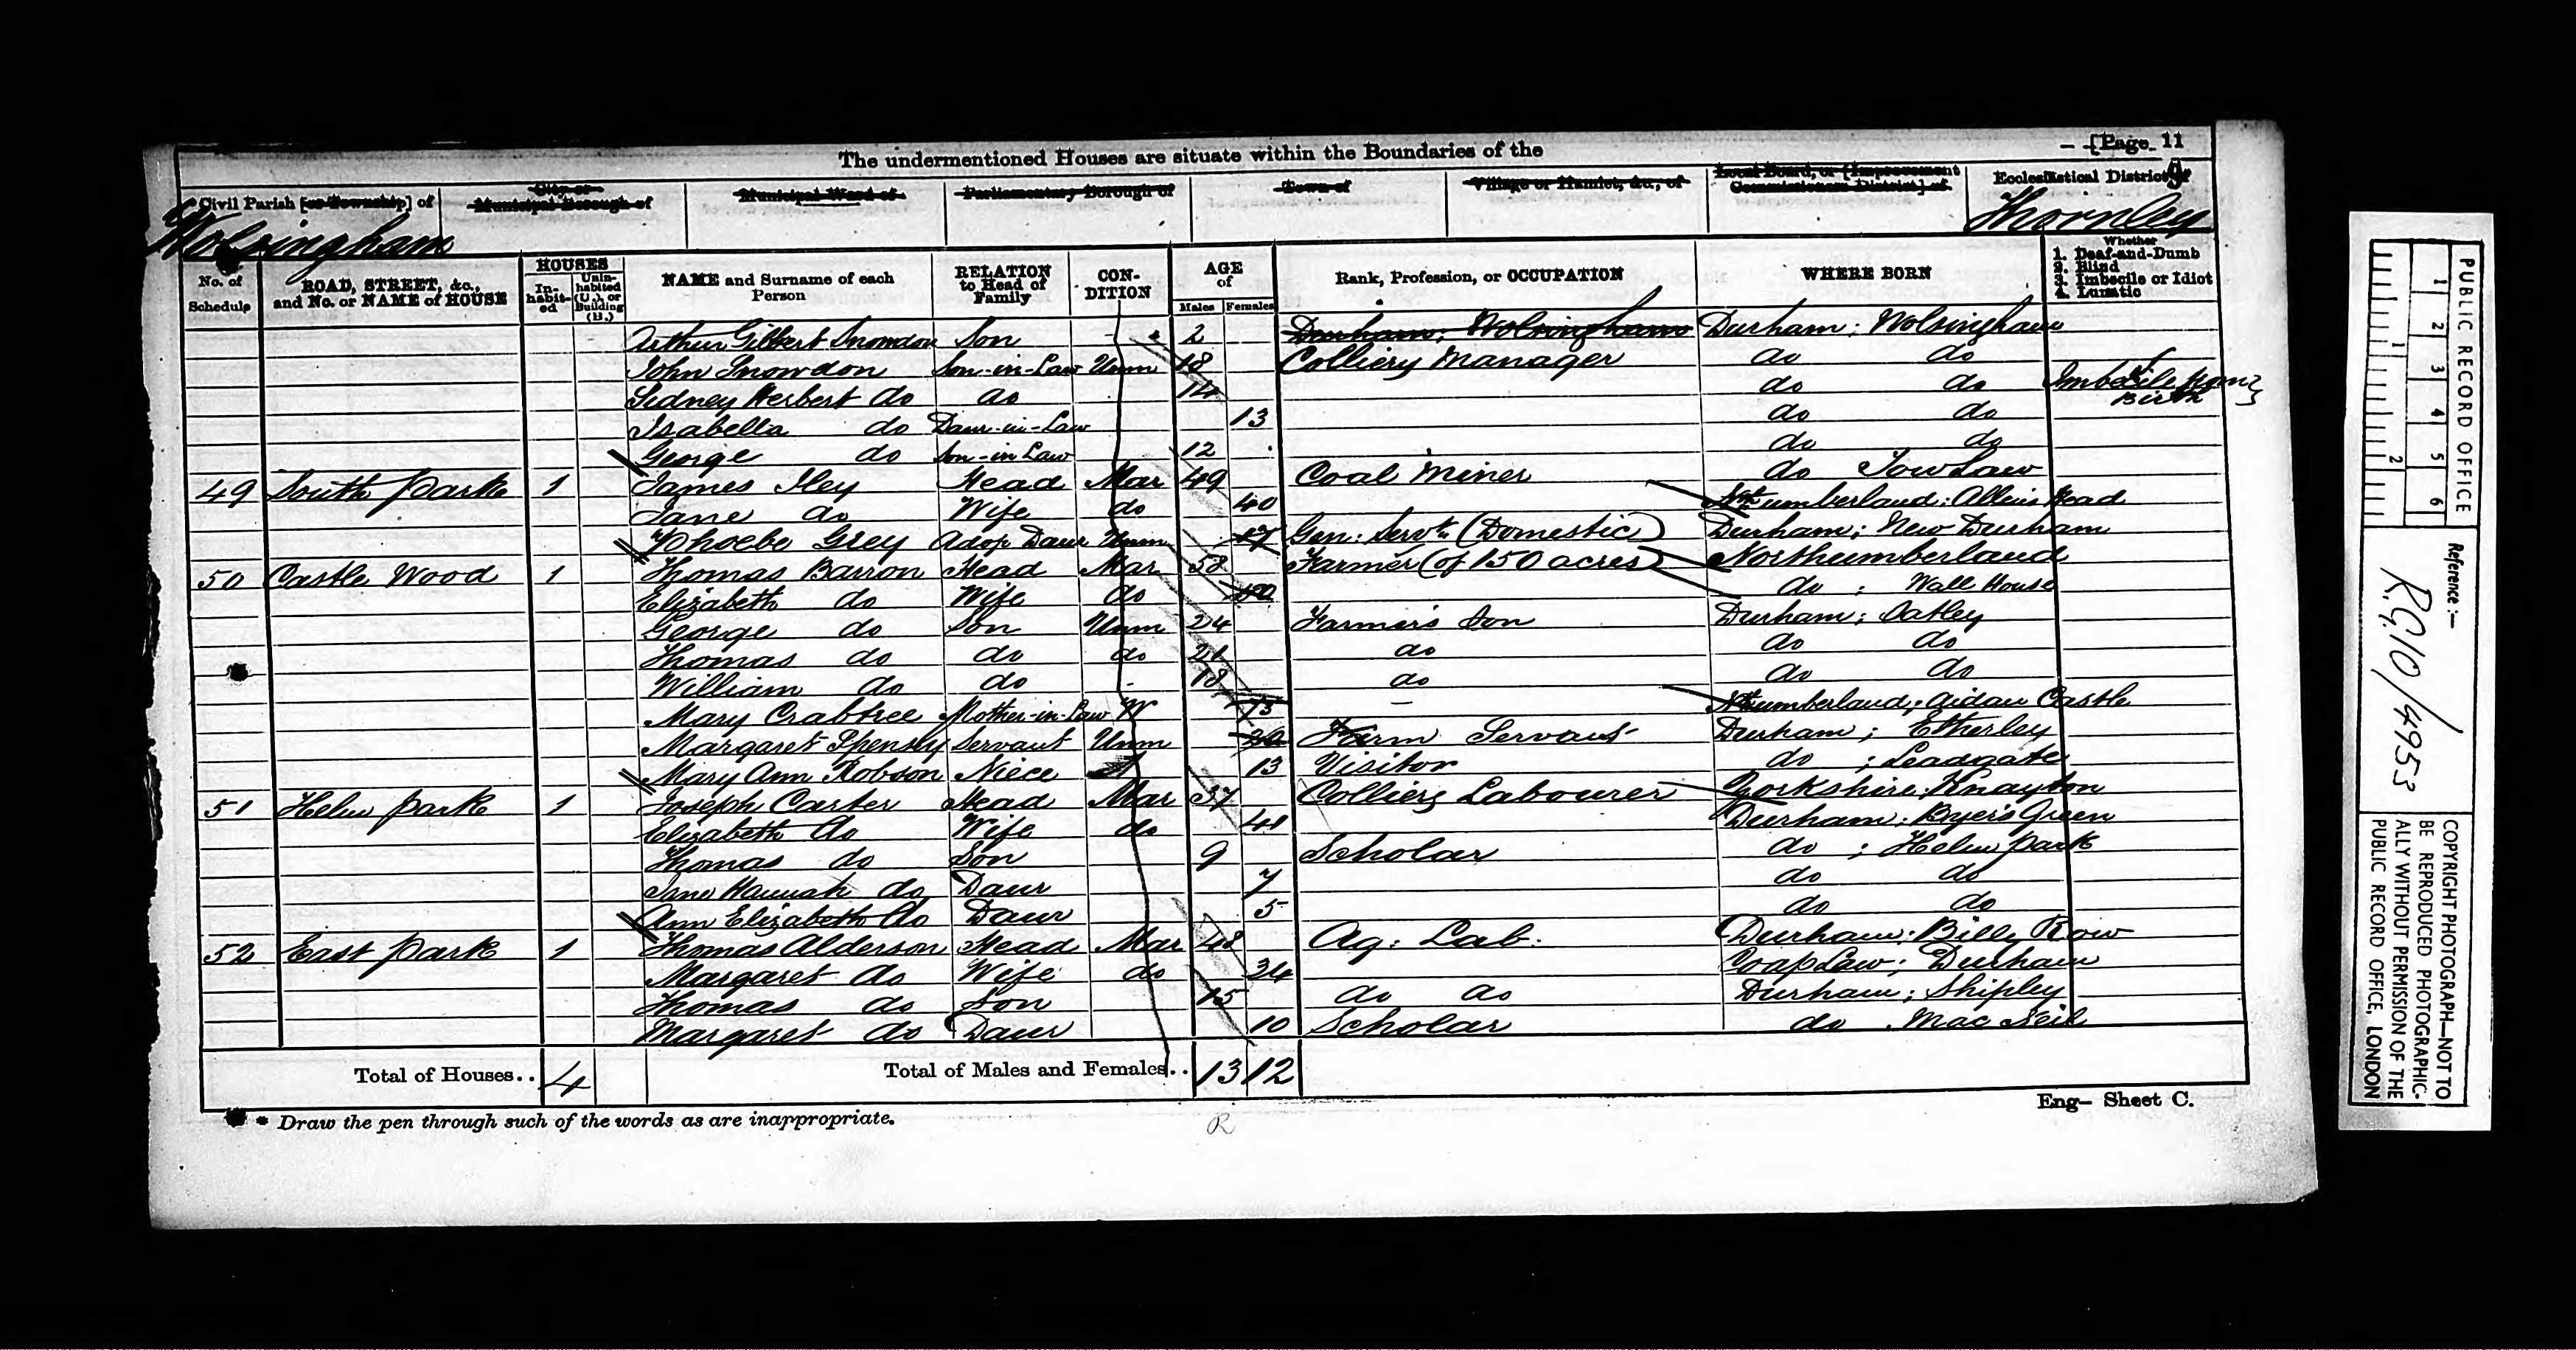 [Page 11
The undermentioned Houses are situate within the Boundaries of the
Civil Parish [or Township] of
City or Municipal Borough of
Municipal Ward of
Parliamentary Borough of
Town of
Village or Hamlet, &c., of
Local Board, or [Improvement Commissioners District] of
Ecclesiastical District of
Wolsingham
Thornley
No. of Schedule
ROAD, STREET, &c., and No. or NAME of HOUSE
HOUSES
In-habit-ed
Unin-habited (U.), or Building (B.)
NAME and Surname of each Person
RELATION to Head of Family
CON-DITION
AGE of
Males
Females
Rank, Profession, or OCCUPATION
WHERE BORN
Whether
1. Deaf-and-Dumb
2. Blind
3. Imbecile or Idiot
4. Lunatic
Arthur Gilbert Snowdon Son 2 Durham; Wolsingham Durham; Wolsingham
John Snowdon Son-in-Law Unm 18 Colliery Manager do do
Sidney Herbert do do 14 do do Imbecile from Birth
Isabella do Daur-in-Law 13 do do
George do Son-in-Law 12 do do
49 South Park 1 James Iley Head Mar 49 Coal Miner do Tow Law
Jane do Wife do 40 Nthumberland: Allens Head
Phoebe Grey Adop Daur Unm 17 Gen: Servt (Domestic) Durham; New Durham
50 Castle Wood 1 Thomas Barron Head Mar 58 Farmer (of 150 acres) Northumberland
Elizabeth do Wife do do ; Wall House
George do Son Unm 24 Farmer's Son Durham; Oatley
Thomas do do do 21 do do do
William do do 18 do do do
Mary Crabtree Mother-in-Law W 73 - Nthumberland; Aidan Castle
Margaret Spensley Servant Unm 20 Farm Servant Durham; Etherley
Mary Ann Robson Niece 13 Visitor do ; Leadgate
51 Helm Park 1 Joseph Carter Head Mar 37 Colliery Labourer Yorkshire: Knayton
Elizabeth do Wife do 41 Durham: Byers Green
Thomas do Son 9 Scholar do ; Helm Park
Jane Hannah do Daur 7 do do
Ann Elizabeth do Daur 5 do do
52 East Park 1 Thomas Alderson Head Mar 48 Ag: Lab: Durham: Billy Row
Margaret do Wife do 34 Law; Durham
Thomas do Son 15 do do Durham; Shipley
Margaret do Daur 10 Scholar do Mac Neil
Total of Houses.. 4
Total of Males and Females.. 13 12
* Draw the pen through such of the words as are inappropriate.
Eng- Sheet C.
R
PUBLIC RECORD OFFICE
1 2 3 4 5 6
1 2
Reference:-
R.G.10/4953
COPYRIGHT PHOTOGRAPH—NOT TO
BE REPRODUCED PHOTOGRAPHIC-
ALLY WITHOUT PERMISSION OF THE
PUBLIC RECORD OFFICE, LONDON